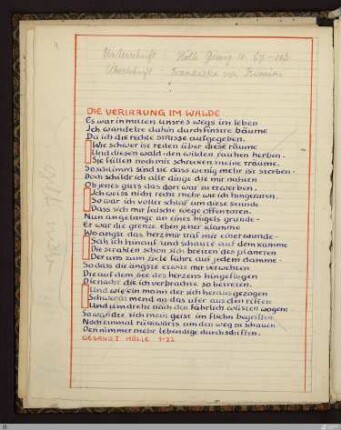 Unterschrift:
Überschrift:
DIE VERIRRUNG IM WALDE
Es war inmitten unsres wegs im leben
Ich wandelte dahin durch finstre bäume
Da ich die rechte strasse aufgegeben.
Wie schwer ist reden über diese räume
Und diesen wald · den wilden rauhen herben ·
Sie füllen noch mit schrecken meine träume.
So schlimm sind sie dass wenig mehr ist sterben ·
Doch schildr ich alle dinge die mir nahten
Ob jenes guts das dort war zu erwerben.
Ich weiss nicht recht mehr wie ich hingeraten
So war ich voller schlaf um diese stunde
Dass sich mir falsche wege offen
Nun angelangt am eines hügels grunde ·
Er war die grenze eben jener klamme
Wo angst das herz mir traf mit einer wunde ·
Sah ich hinauf und schaute auf dem kamme
Die strahlen schon sich breiten des planeten
Der uns zum ziele führt aus jedem damme ·
So dass die ängste etwas mir verwehten
Die auf dem see des herzens hingeflogen
Die nacht die ich verbrachte so betreten.
Und wie ein mann der sich heraus gezogen
Schweratmend an das ufer aus den
Und umdreht nach den fährlich wüsten wogen
So wandte sich mein geist im fliehn begriffen
Noch einmal rückwärts um den weg zu schauen
Den nimmer mehr lebendige durchschiffen.
GESANG I HÖLLE 1-27